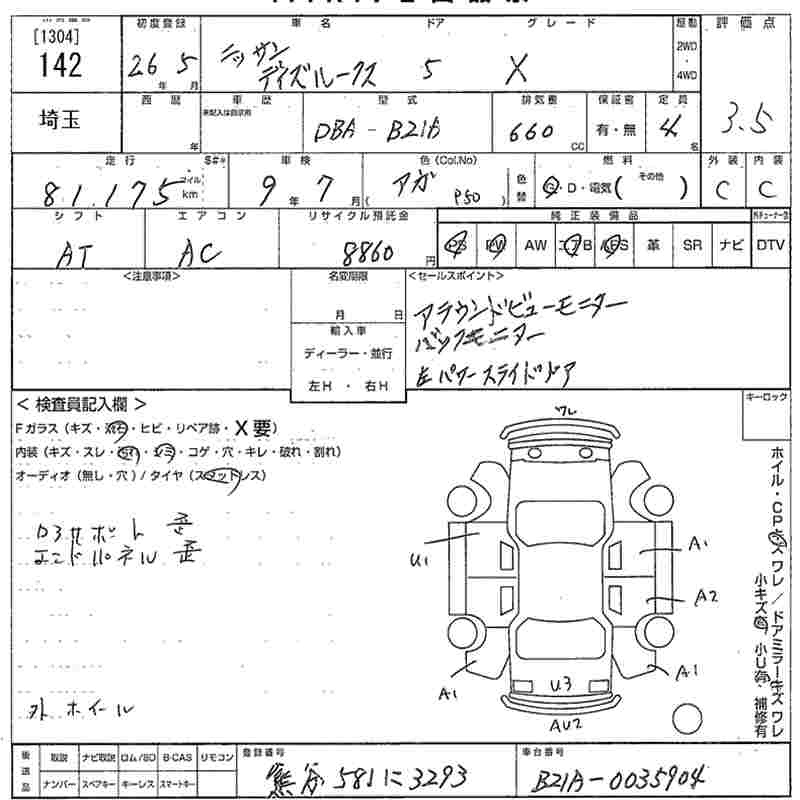 [1304]
142
埼玉
初度登録
26年 5月
車名 ドア グレード
ニッサン
デイズルークス 5 X
駆動
2WD
4WD
評価点
3.5
西暦
年
車歴
未記入は自家用
型式
DBA-B21A
排気量
660 CC
保証書
有・無
定員
4名
走行 S#*
81,175 マイル km
車検
9年 7月
色(Col,No)
アカ
P50
色替
燃料
G・D・電気( その他 )
外装
C
内装
C
シフト
AT
エアコン
AC
リサイクル預託金
8860円
純正装備品
PS PW AW エアB ABS 革 SR ナビ DTV
<注意事項>
名変期限
月 日
輸入車
ディーラー・並行
左H ・ 右H
<セールスポイント>
アラウンドビューモニター
バックモニター
左パワースライドドア
< 検査員記入欄 >
Fガラス (キズ・飛石・ヒビ・リペア跡・X要)
内装 (キズ・スレ・汚れ・シミ・コゲ・穴・キレ・破れ・割れ)
オーディオ (無し・穴) / タイヤ (スタッドレス)
ロアサポート 歪
エンドパネル 歪
外 ホイール
キーロック
ワレ
U1
A1
A2
A1
A1
U3
AU2
ホイル・CPキズ ワレ / ドアミラーキズ ワレ
小キズ有 小U有・補修有
後送品
取説 ナビ取説 ロム/SD B-CAS リモコン
ナンバー スペアキー キーレス スマートキー
登録番号
熊谷 581 に 3293
車台番号
B21A-0035904